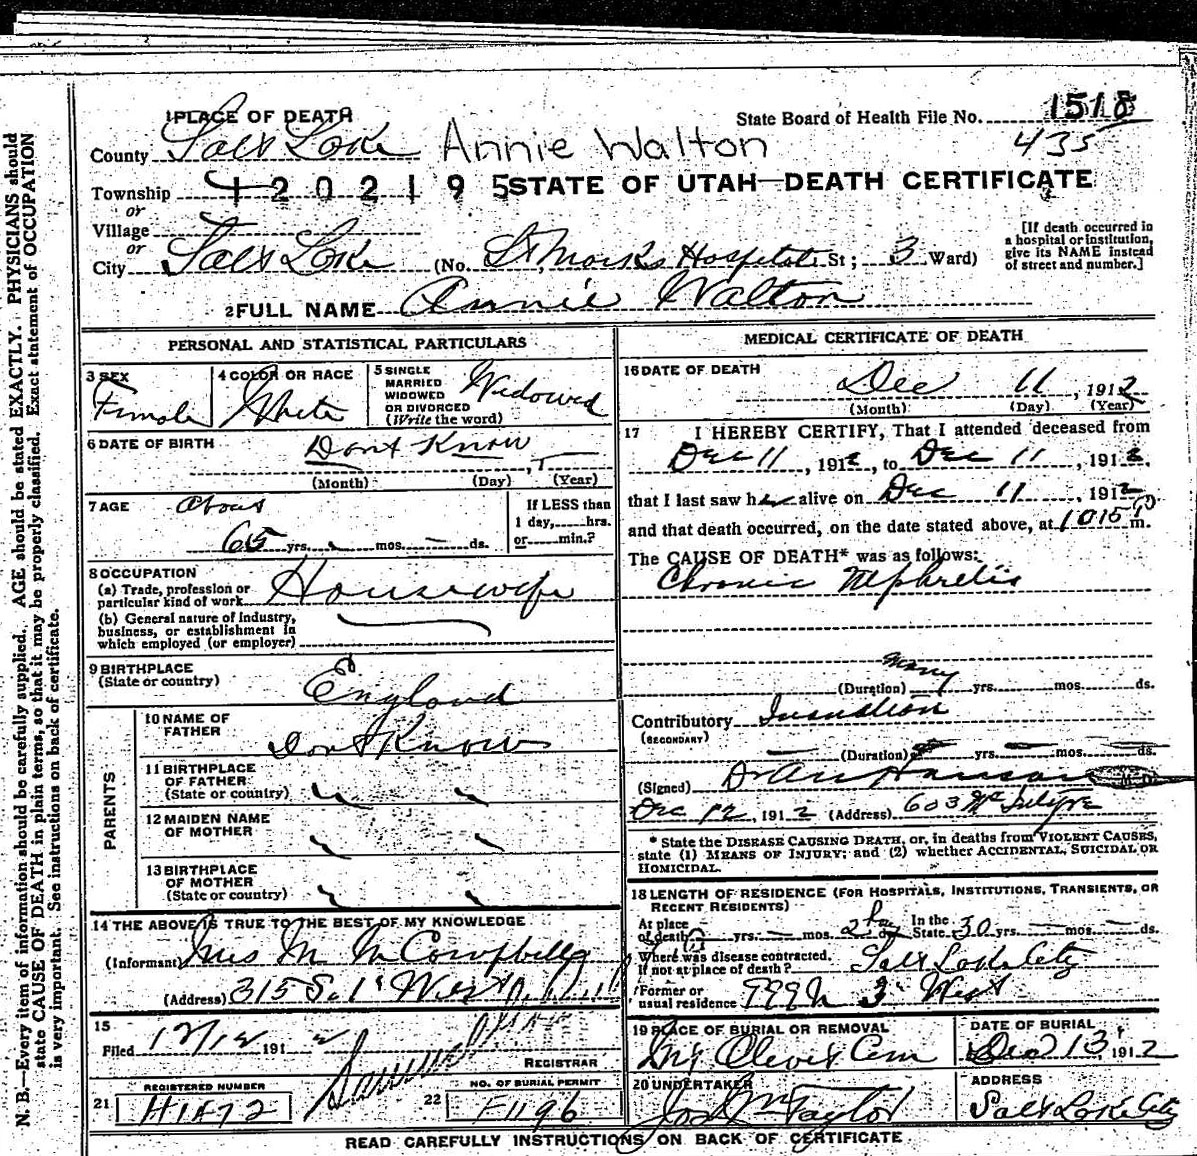 1 PLACE OF DEATH
State Board of Health File No. 1518
435
County Salt Lake Annie Walton
Township 1202195 STATE OF UTAH—DEATH CERTIFICATE
or
Village
or
City Salt Lake (No. St Marks Hospital St; 3 Ward)
[If death occurred in
a hospital or institution,
give its NAME instead
of street and number.]
2 FULL NAME Annie Walton
PERSONAL AND STATISTICAL PARTICULARS
3 SEX Female
4 COLOR OR RACE White
5 SINGLE
MARRIED
WIDOWED
OR DIVORCED
(Write the word) Widowed
6 DATE OF BIRTH Dont Know
(Month) (Day) (Year)
7 AGE about
65 yrs. mos. ds.
If LESS than
1 day, hrs.
or min.?
8 OCCUPATION
(a) Trade, profession or
particular kind of work Housewife
(b) General nature of industry,
business, or establishment in
which employed (or employer)
9 BIRTHPLACE
(State or country) England
PARENTS
10 NAME OF
FATHER Dont Know
11 BIRTHPLACE
OF FATHER
(State or country) " "
12 MAIDEN NAME
OF MOTHER " "
13 BIRTHPLACE
OF MOTHER
(State or country) " "
14 THE ABOVE IS TRUE TO THE BEST OF MY KNOWLEDGE
(Informant) Mrs M
(Address) 315 So 1st West
15
Filed 12/12 1912
REGISTRAR
REGISTERED NUMBER
21 H1472
NO. OF BURIAL PERMIT
22 F1196
MEDICAL CERTIFICATE OF DEATH
16 DATE OF DEATH
Dec 11, 1912
(Month) (Day) (Year)
17 I HEREBY CERTIFY, That I attended deceased from
Dec 11, 1912, to Dec 11, 1912,
that I last saw her alive on Dec 11, 1912
and that death occurred, on the date stated above, at 1015 P m.
The CAUSE OF DEATH* was as follows:
Chronic Nephritis
(Duration) many yrs. mos. ds.
Contributory Inanition
(SECONDARY)
(Duration) yrs. mos. ds.
(Signed) M.D.
Dec 12, 1912 (Address) 603 McIntyre
* State the DISEASE CAUSING DEATH, or, in deaths from VIOLENT CAUSES,
state (1) MEANS OF INJURY; and (2) whether ACCIDENTAL, SUICIDAL OR
HOMICIDAL.
18 LENGTH OF RESIDENCE (FOR HOSPITALS, INSTITUTIONS, TRANSIENTS, OR
RECENT RESIDENTS)
At place
of death yrs. mos. 2 In the
State 30 yrs. mos. ds.
Where was disease contracted,
If not at place of death? Salt Lake City
Former or
usual residence West
19 PLACE OF BURIAL OR REMOVAL
Mt Olivet Cem
DATE OF BURIAL
Dec 13, 1912
20 UNDERTAKER
Jos Wm Taylor
ADDRESS
Salt Lake City
READ CAREFULLY INSTRUCTIONS ON BACK OF CERTIFICATE
N. B.—Every item of information should be carefully supplied. AGE should be stated EXACTLY. PHYSICIANS should
state CAUSE OF DEATH in plain terms, so that it may be properly classified. Exact statement of OCCUPATION
is very important. See instructions on back of certificate.